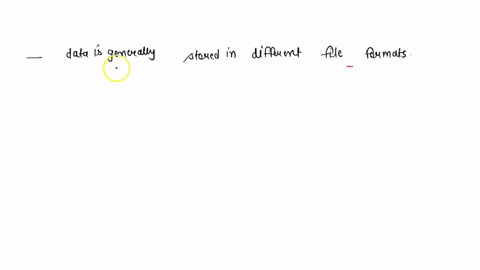 — data is generally stored in different file formats.